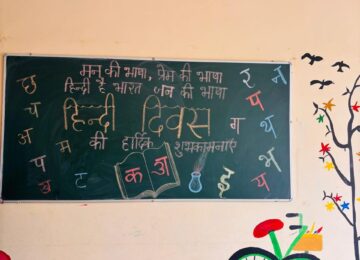 मन की भाषा, प्रेम की भाषा
हिन्दी है भारत जन की भाषा
हिन्दी दिवस
की हार्दिक शुभकामनाएँ
छ
य
अ
प
अ
म
ट
क अ
इ
ग
र
न
प
थ
थ
भ
य